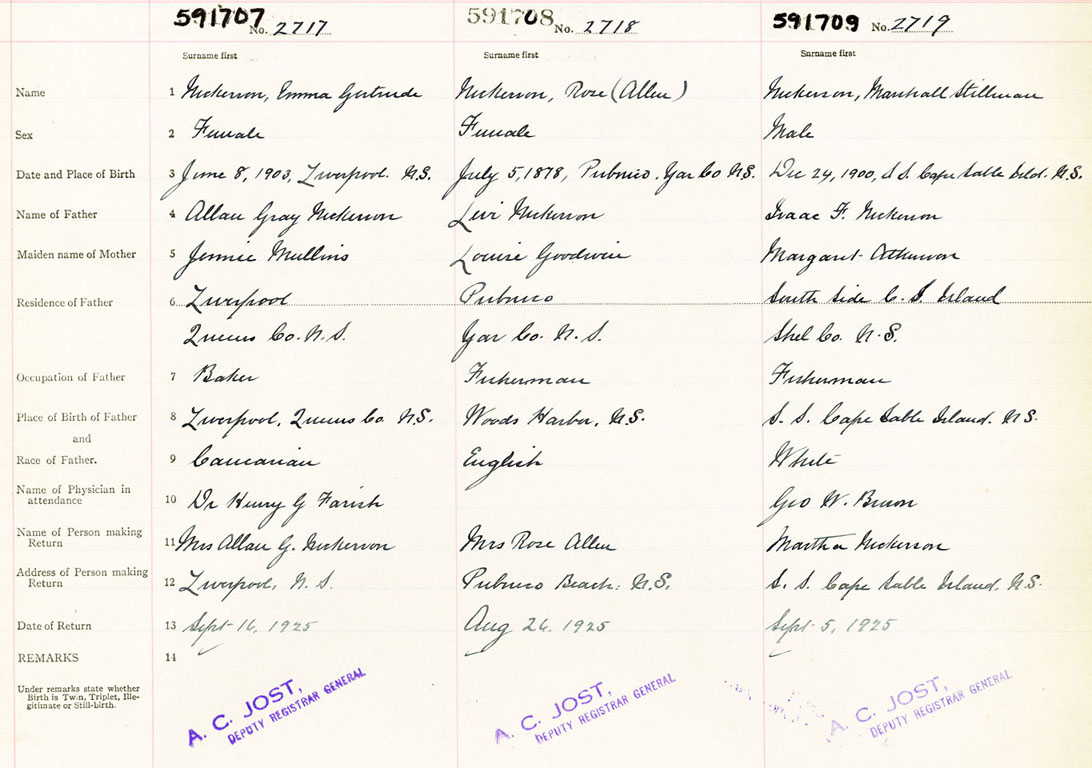 591707 No. 2717 591708 No. 2718 591709 No. 2719
Surname first Surname first Surname first
Name 1 Nickerson, Emma Gertrude Nickerson, Rose (Allen) Nickerson, Marshall Stillman
Sex 2 Female Female Male
Date and Place of Birth 3 June 8, 1903, Liverpool. N.S. July 5, 1878, Pubnico, Yar Co N.S. Dec 24, 1900, S S. Cape Sable Isld. N.S.
Name of Father 4 Allan Gray Nickerson Levi Nickerson Isaac F. Nickerson
Maiden name of Mother 5 Jennie Mullins Louise Goodwin Margaret Atkinson
Residence of Father 6 Liverpool Pubnico South Side C. S. Island
Queens Co. N.S. Yar Co. N.S. Shel Co. N.S.
Occupation of Father 7 Baker Fisherman Fisherman
Place of Birth of Father 8 Liverpool, Queens Co. N.S. Woods Harbor, N.S. S. S. Cape Sable Island. N.S.
and
Race of Father. 9 Caucasian English White
Name of Physician in
attendance 10 Dr Henry G Farish Geo W. Brown
Name of Person making
Return 11 Mrs Allan G. Nickerson Mrs Rose Allen Martha Nickerson
Address of Person making
Return 12 Liverpool, N.S. Pubnico Beach, N.S. S. S. Cape Sable Island, N.S.
Date of Return 13 Sept 16, 1925 Aug 26, 1925 Sept 5, 1925
REMARKS 14
Under remarks state whether
Birth is Twin, Triplet, Ille-
gitimate or Still-birth.
A. C. JOST, A. C. JOST, A. C. JOST,
DEPUTY REGISTRAR GENERAL DEPUTY REGISTRAR GENERAL DEPUTY REGISTRAR GENERAL